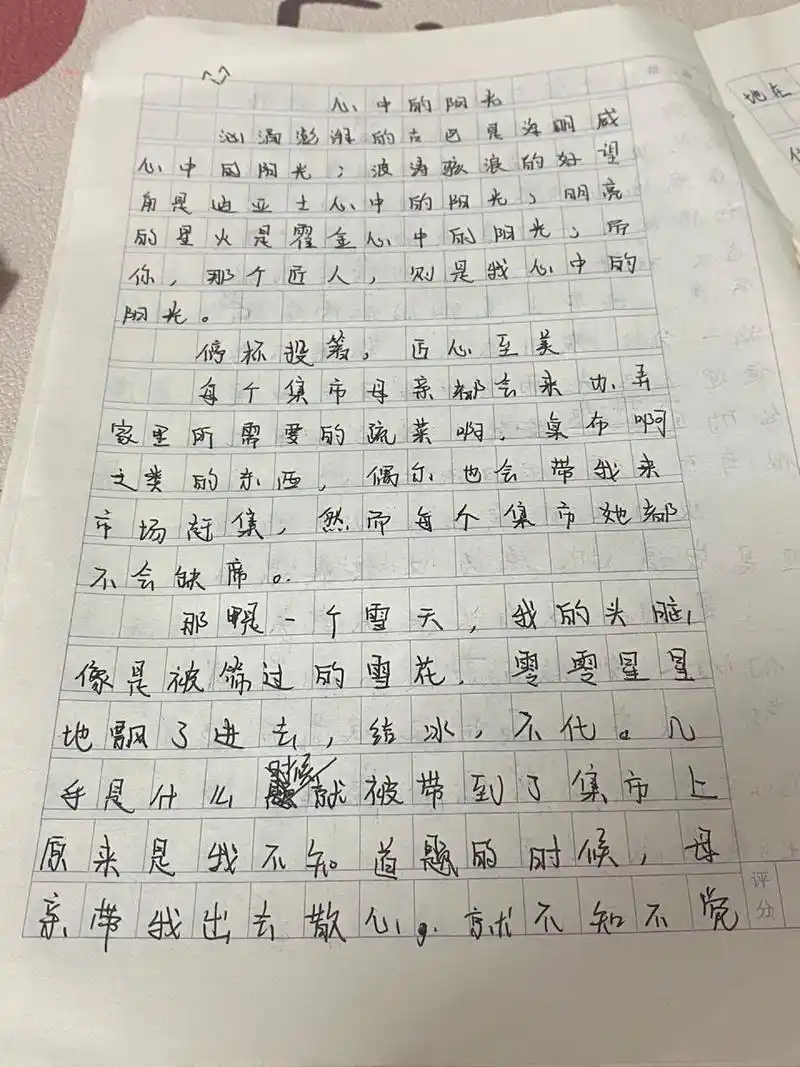 心中的阳光
汹涌澎湃的古巴是海明威
心中的阳光；波涛骇浪的好望
角是迪亚士心中的阳光；明亮
的星火是霍金心中的阳光；而
你，那个匠人，则是我心中的
阳光。
停杯投箸，匠心至美
每个集市母亲都会来办弄
家里所需要的疏菜啊，桌布啊
之类的东西，偶尔也会带我来
市场赶集，然而每个集市她都
不会缺席。
那是一个雪天，我的头脏，
像是被筛过的雪花，零零星星
地飘了进去，结冰，不化。几
乎是什么时候就被带到了集市上
原来是我不知道题的时候，母
亲带我出去散心。就不知不觉
评分
地在